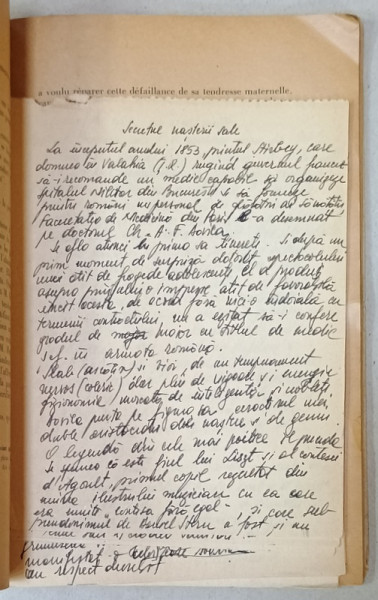 a voulu réparer cette défaillance de sa tendresse maternelle.
Secretul nașterii sale
La începutul anului 1853, prințul Știrbey, care
domnea în Valahia (Ț.R.) rugînd guvernul francez
să-i recomande un medic capabil să organizeze
spitalul Militar din București și să formeze
pentru români un personal de ofițeri de sănătate
Facultatea de Medicină din Paris l-a desemnat
pe doctorul Ch. A. F. Davila
Se afla atunci în prima sa tinerețe. Și după un
prim moment, de surpriză datorită spectacolului
unei atît de fragede adolescențe, el a produs
asupra prințului o impresie atît de favorabilă
încît acesta, de acord fără nicio îndoială cu
termenii contractului, nu a ezitat să-i confere
gradul de major cu titlul de medic
șef în armata română.
Slab și vioi, de un temperament
nervos (coleric) dar plin de vigoare și energie
fizionomie de inteligență, și noblețe,
Davila purta pe figura sa caracterul unei
duble aristocrații de naștere și de geniu.
O legendă din cele mai poetice
Se spunea că este fiul lui Liszt și al contesei
d'Agoult, primul copil rezultat din
ilustrului muzician cu cea care
era numită "contesa fără egal" și care sub
pseudonimul de Daniel Stern a fost și
un respect